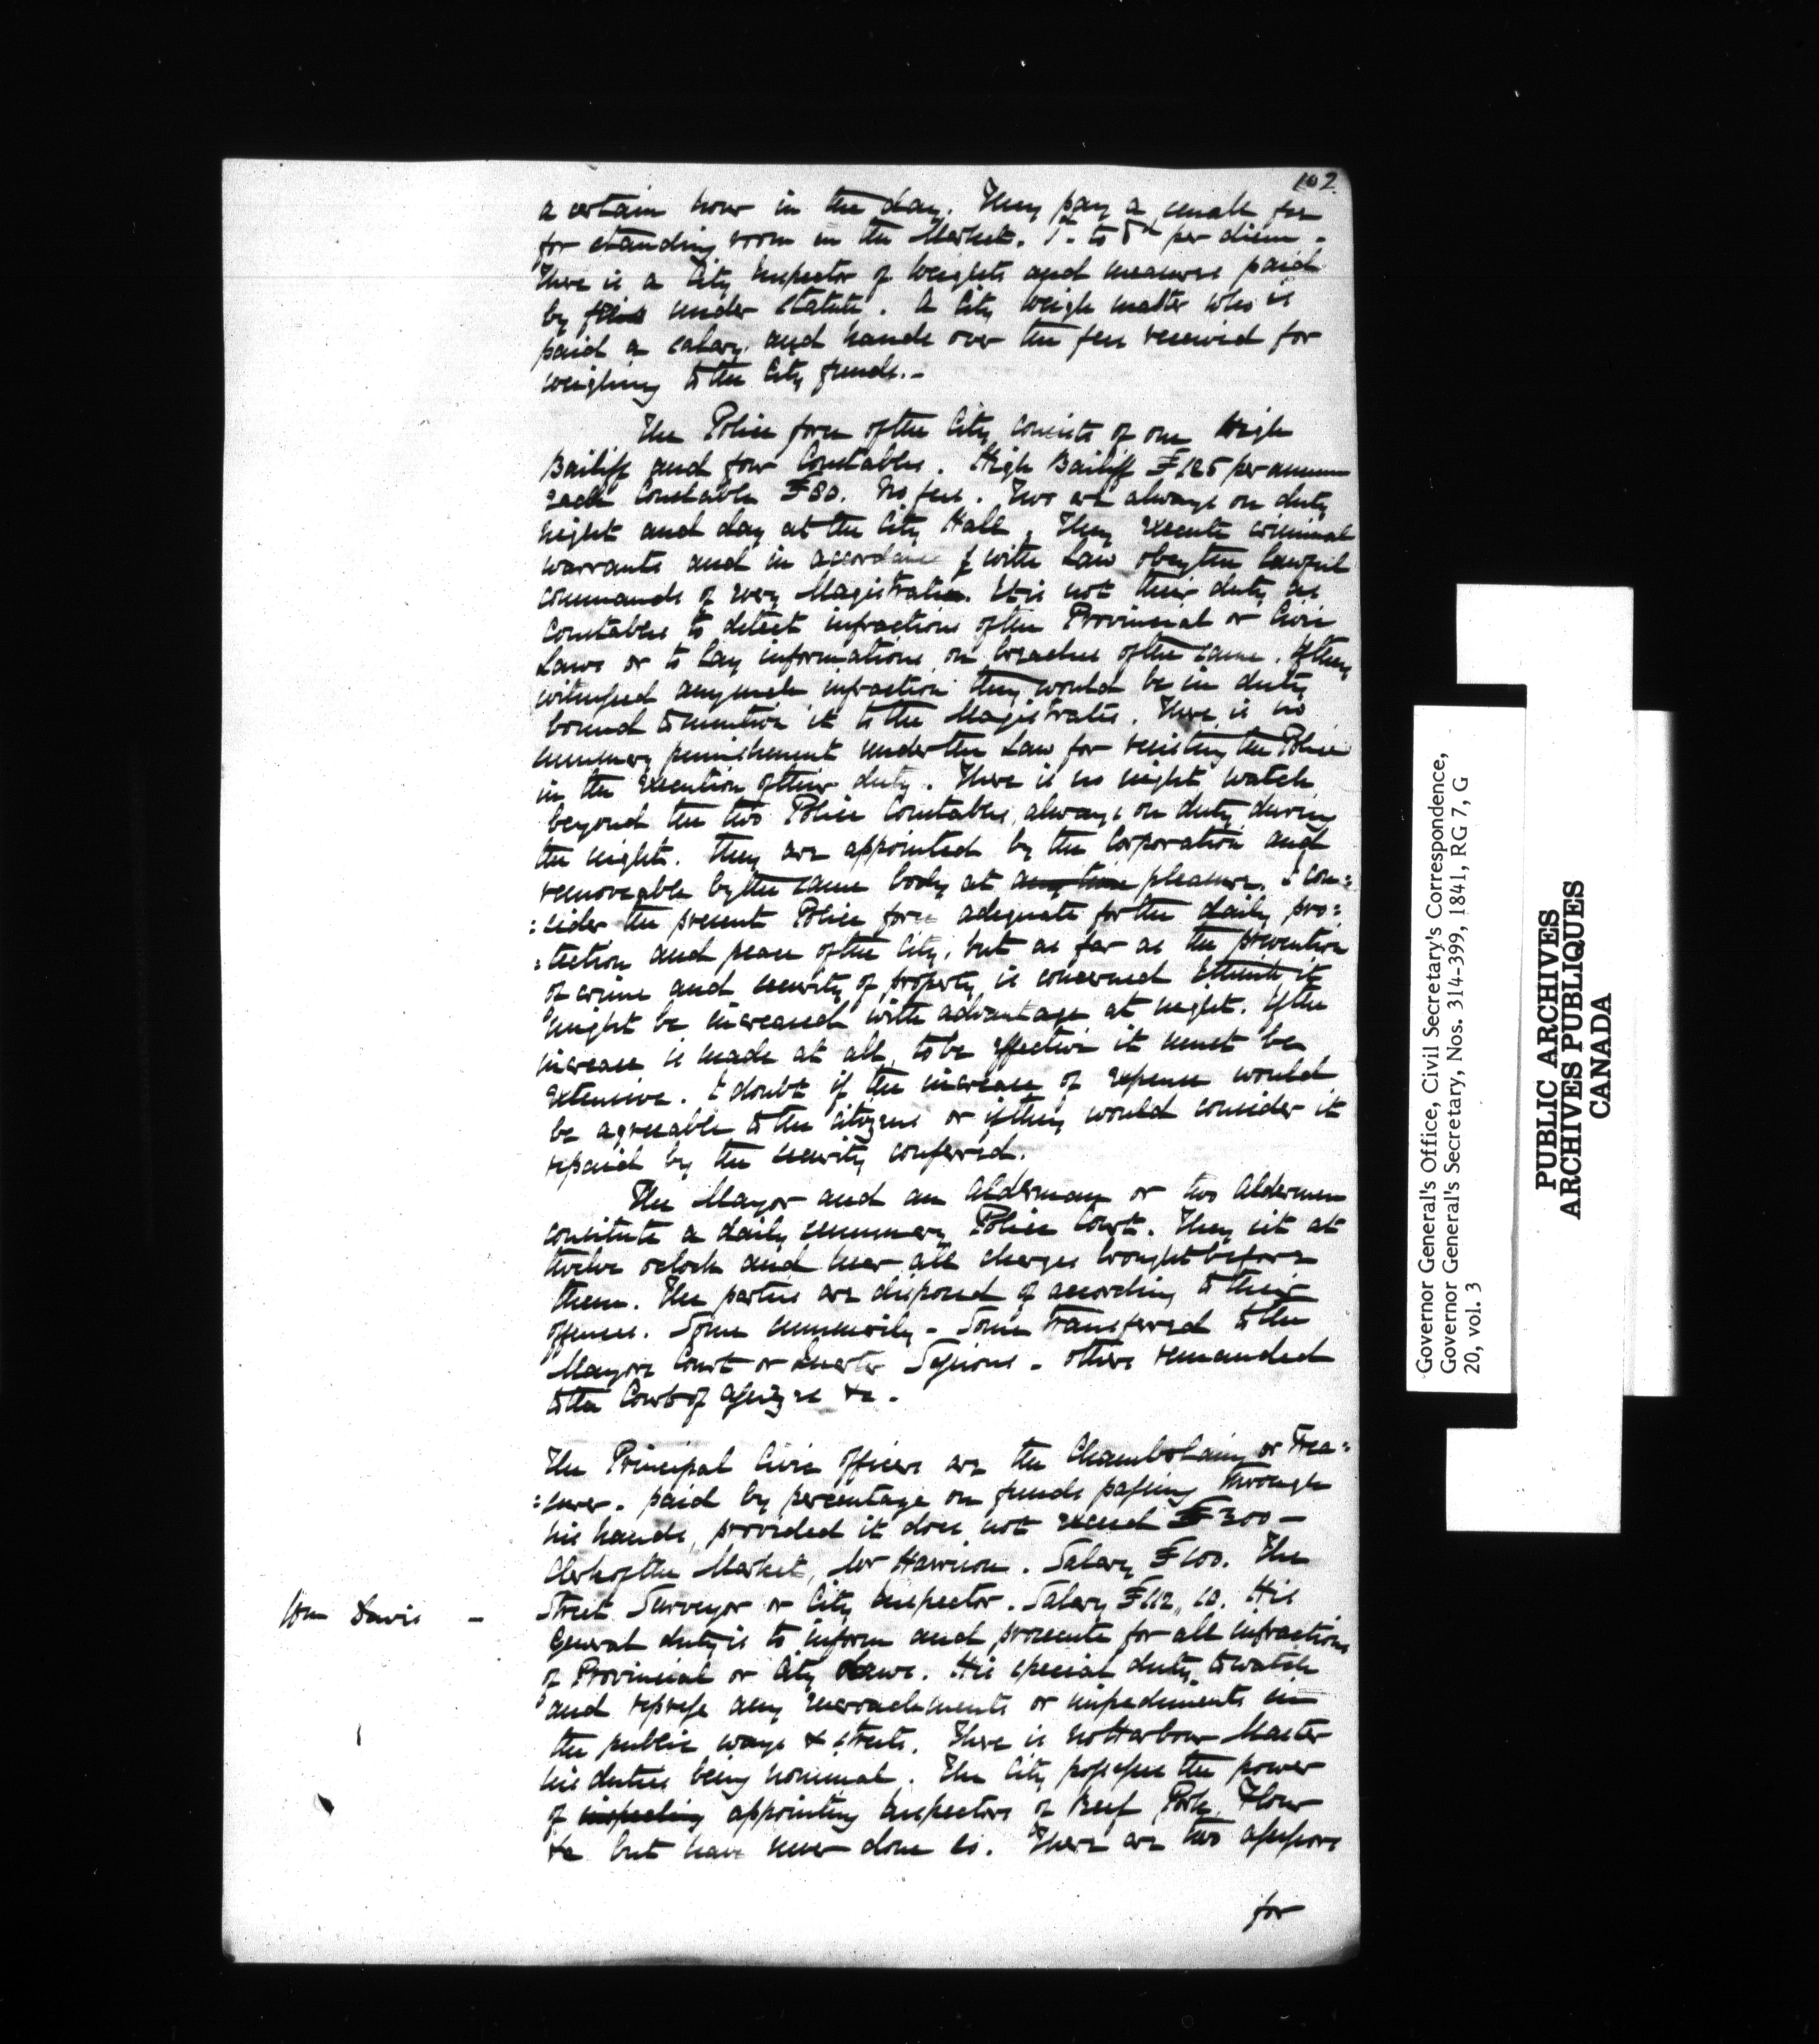 102
a certain hour in the day. They pay a small fee
for standing room in the Market. to 5d per diem -
There is a City Inspector of Weights and measures paid
by fees under Statute. A City weigh master who is
paid a salary and hands over the fees received for
weighing to the City funds. -
The Police force of the City consists of one High
Bailiff and four Constables. High Bailiff £125 per annum
each Constable £80. No fees. Two are always on duty
night and day at the City Hall, They execute criminal
warrants and in accordance with Law obey the lawful
commands of every Magistrate. It is not their duty as
Constables to detect infractions of the Provincial or Civic
Laws or to lay informations on breaches of the same. If they
witnessed any such infraction they would be in duty
bound to mention it to the Magistrates. There is no
summary punishment under the Law for resisting the Police
in the execution of their duty. There is no night watch
beyond the two Police Constables always on duty during
the night. They are appointed by the Corporation and
removeable by the same body at any time pleasure. I con=
=sider the present Police force adequate for the daily pro=
=tection and peace of the City, but as far as the prevention
of crime and security of property is concerned I think it
might be increased with advantage at night. If the
increase is made at all, to be effective it must be
extensive. I doubt if the increase of expense would
be agreeable to the Citizens or if they would consider it
repaid by the security conferred.
The Mayor and an Alderman or two Aldermen
constitute a daily summary Police Court. They sit at
twelve oclock and hear all charges brought before
them. The parties are disposed of according to their
offences. Some summarily - Some transferred to the
Mayors Court or Quarter Sessions - others remanded
to the Court of Assizes &c -
The Principal Civic Officers are the Chamberlain or Trea=
=surer. paid by percentage on funds passing through
his hands, provided it does not exceed £300 -
Clerk of the Market, Mr Harrison. Salary £100. The
Wm Davis -
Street Surveyor or City Inspector. Salary £112,,10. His
general duty is to inform and prosecute for all infractions
of Provincial or City Laws. His special duty to watch
and repress any encroachments or impediments in
the public ways & streets. There is no Harbour Master
his duties being nominal. The City possesses the power
of inspecting appointing Inspectors of Beef, Pork, Flour
&c but have never done so. There are two assessors
for
Governor General's Office, Civil Secretary's Correspondence,
Governor General's Secretary, Nos. 314-399, 1841, RG 7, G
20, vol. 3
PUBLIC ARCHIVES
ARCHIVES PUBLIQUES
CANADA